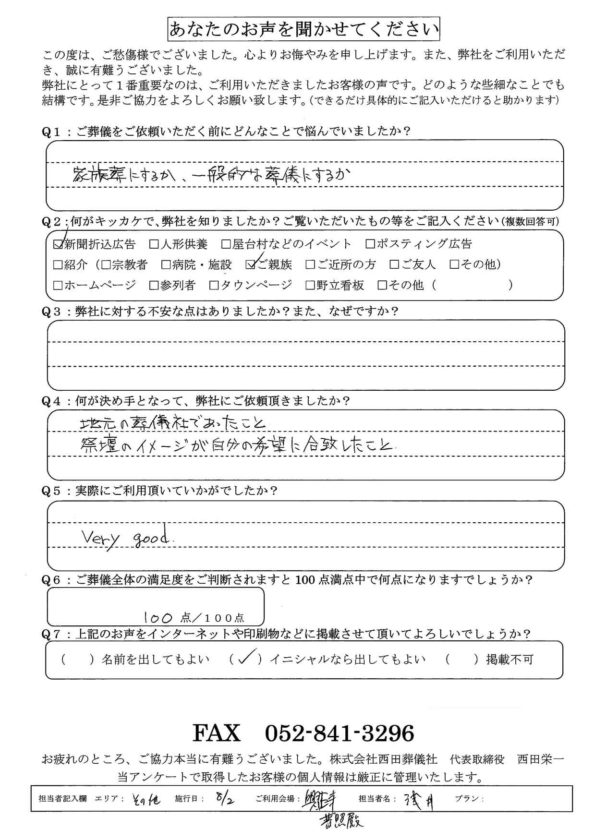 あなたのお声を聞かせてください
この度は、ご愁傷様でございました。心よりお悔やみを申し上げます。また、弊社をご利用いただ
き、誠に有難うございました。
弊社にとって１番重要なのは、ご利用いただきましたお客様の声です。どのような些細なことでも
結構です。是非ご協力をよろしくお願い致します。（できるだけ具体的にご記入いただけると助かります）
Ｑ１：ご葬儀をご依頼いただく前にどんなことで悩んでいましたか？
家族葬にするか、一般的な葬儀にするか
Ｑ２：何がキッカケで、弊社を知りましたか？ご覧いただいたもの等をご記入ください（複数回答可）
☑新聞折込広告 □人形供養 □屋台村などのイベント □ポスティング広告
□紹介（□宗教者 □病院・施設 ☑ご親族 □ご近所の方 □ご友人 □その他）
□ホームページ □参列者 □タウンページ □野立看板 □その他（ ）
Ｑ３：弊社に対する不安な点はありましたか？また、なぜですか？
Ｑ４：何が決め手となって、弊社にご依頼頂きましたか？
地元の葬儀社であったこと
祭壇のイメージが自分の希望に合致したこと
Ｑ５：実際にご利用頂いていかがでしたか？
Very good.
Ｑ６：ご葬儀全体の満足度をご判断されますと 100 点満点中で何点になりますでしょうか？
100 点/１００点
Ｑ７：上記のお声をインターネットや印刷物などに掲載させて頂いてよろしいでしょうか？
（ ）名前を出してもよい （✓）イニシャルなら出してもよい （ ）掲載不可
FAX 052-841-3296
お疲れのところ、ご協力本当に有難うございました。株式会社西田葬儀社 代表取締役 西田栄一
当アンケートで取得したお客様の個人情報は厳正に管理いたします。
担当者記入欄 エリア： その他 施行日： 8/2 ご利用会場： 担当者名： 浅井 プラン：
普照殿